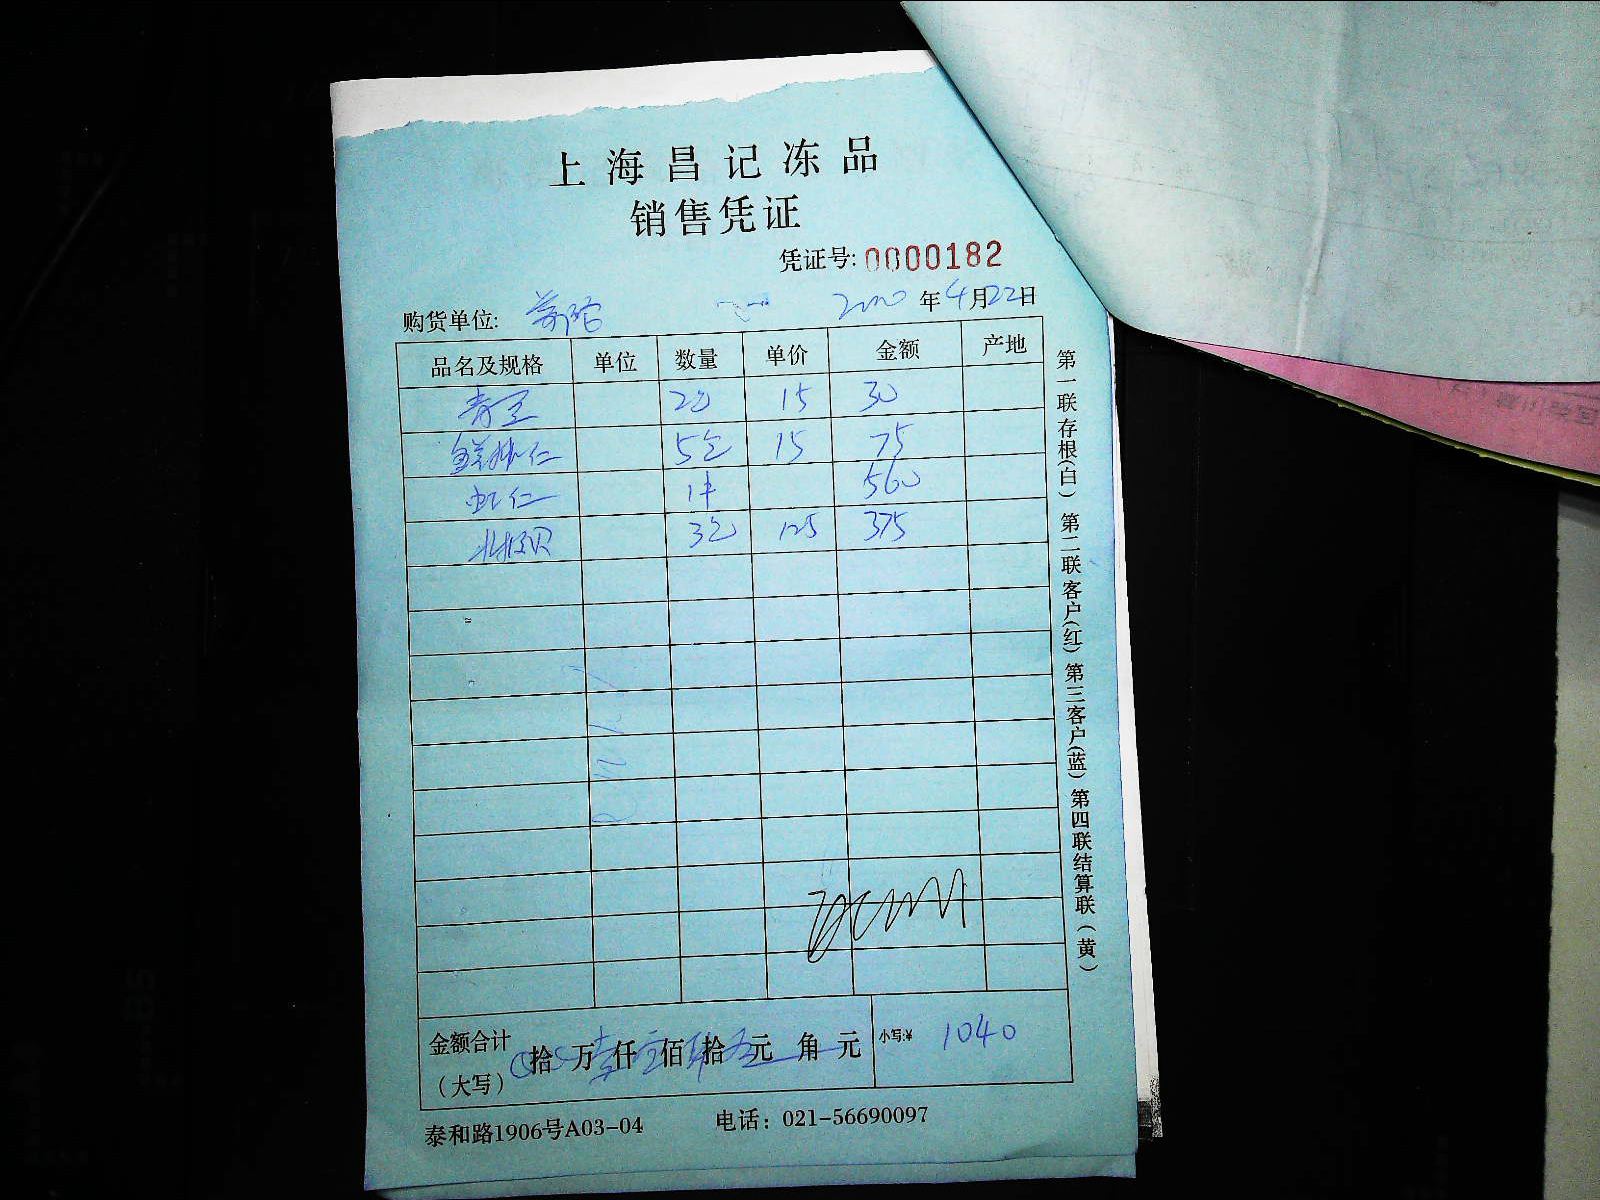 上海昌记冻品
销售凭证
凭证号: 0000182
购货单位: 2020年4月22日
品名及规格 单位 数量 单价 金额 产地
青豆 2包 15 30
鲜虾仁 5包 15 75
虾仁 1件 560
北极贝 3包 125 375
金额合计(大写) 拾万壹仟零佰肆拾零元角元 小写:¥ 1040
泰和路1906号A03-04 电话: 021-56690097
第一联存根(白) 第二联客户(红) 第三客户(蓝) 第四联结算联(黄)